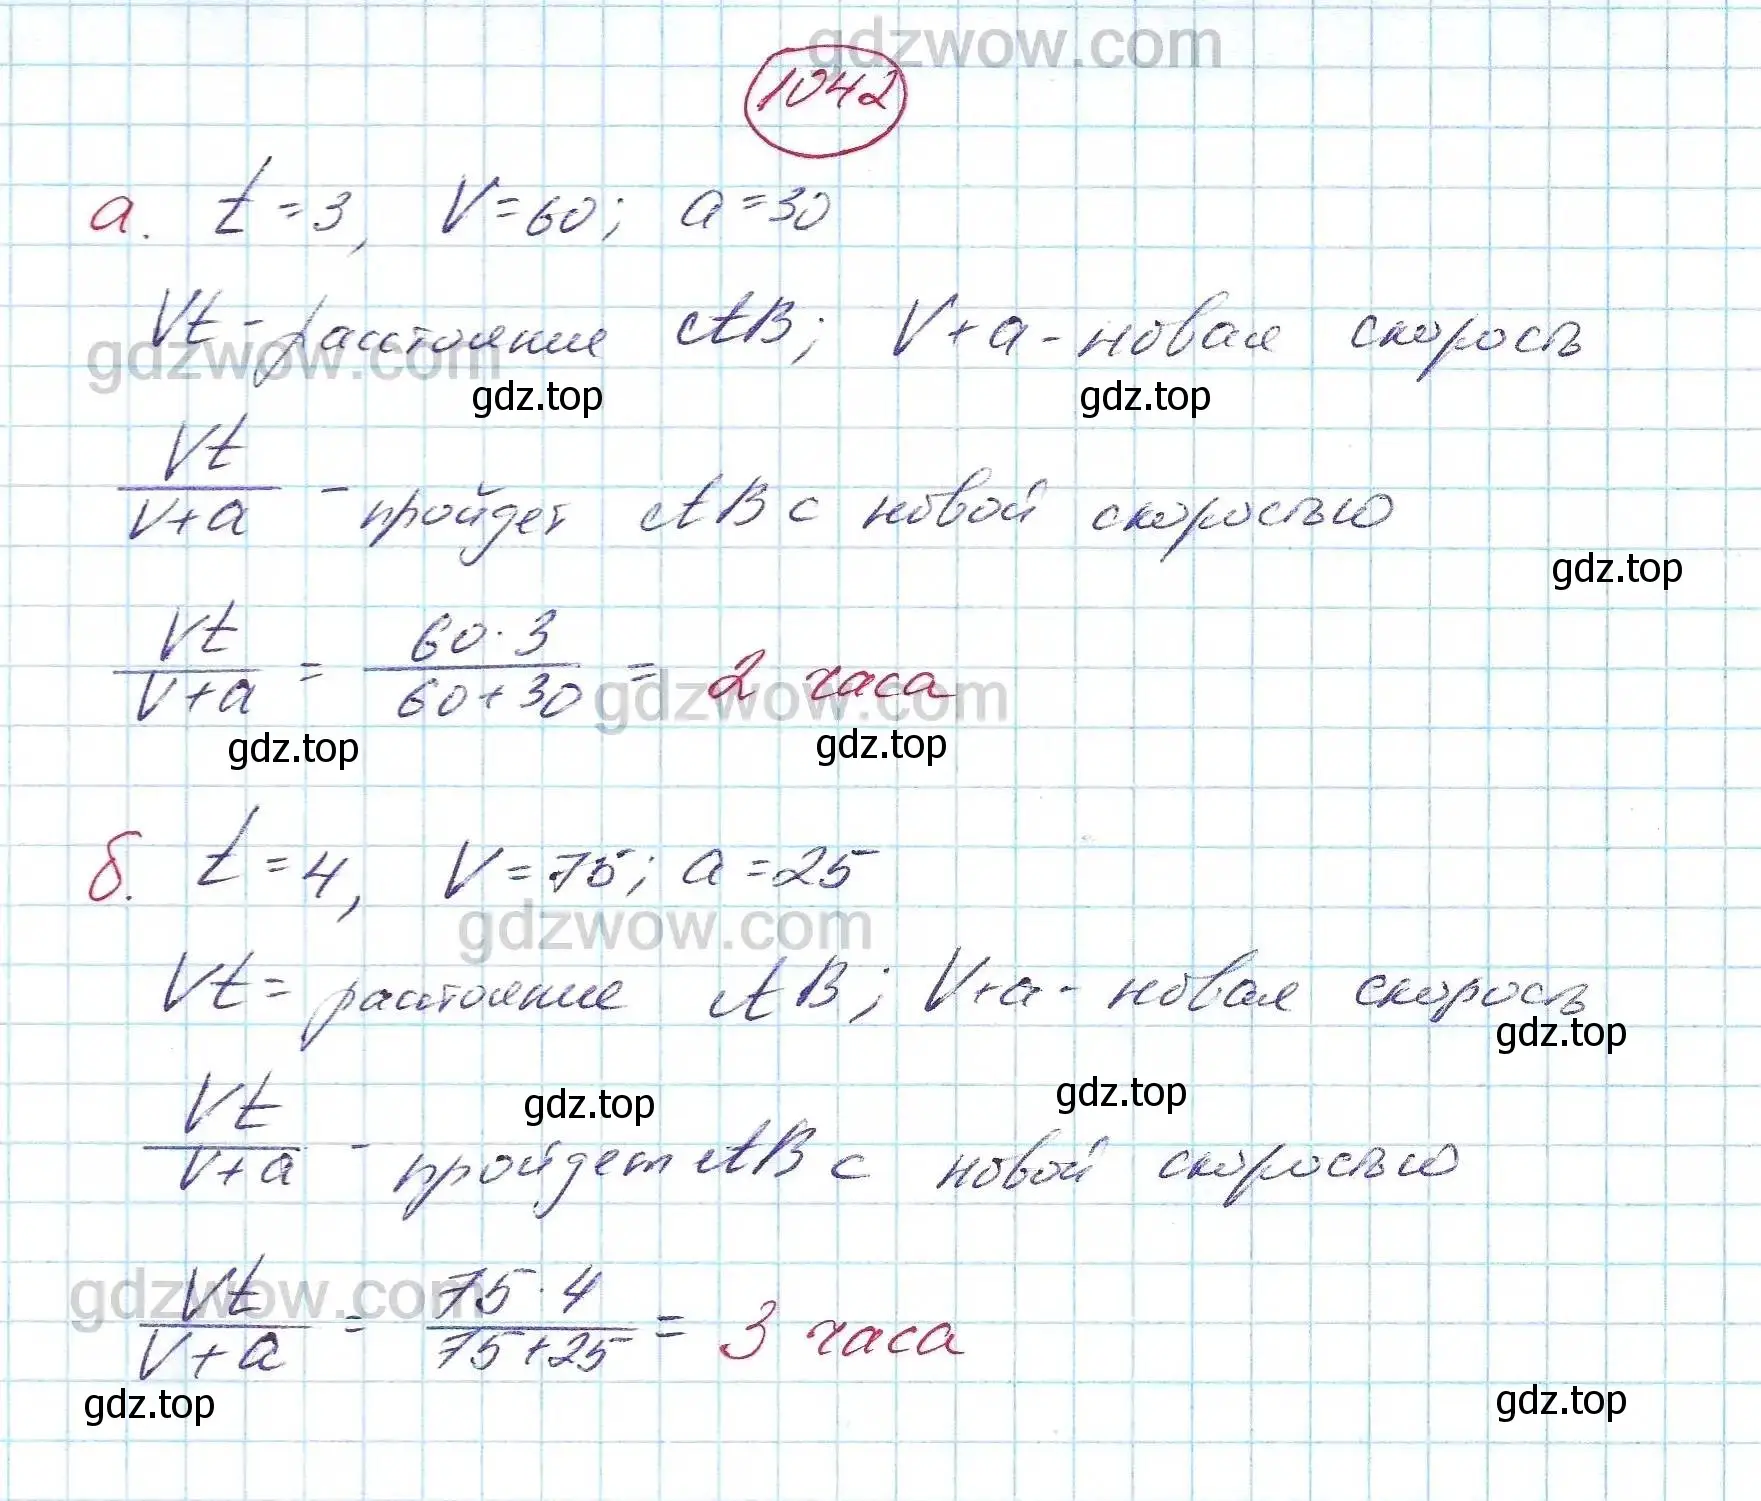 gdzwow.com
1042
а. t = 3, V = 60; a = 30
Vt - расстояние AB; V + a - новая скорость
gdzwow.com
gdz.top gdz.top
Vt/V+a - пройдет AB с новой скоростью
gdz.top
Vt/V+a = 60 · 3/60 + 30 = 2 часа
gdzwow.com
gdz.top gdz.top
б. t = 4, V = 75; a = 25
gdzwow.com
Vt = расстояние AB; V + a - новая скорость
gdz.top
gdz.top gdz.top
Vt/V+a - пройдет AB с новой скоростью
gdzwow.com
Vt/V+a = 75 · 4/75 + 25 = 3 часа
gdz.top gdz.top